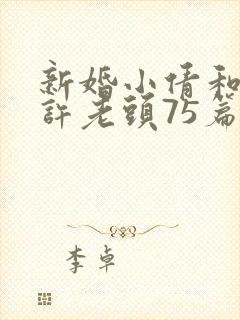 新婚小倩和
許老頭75篇
李卓